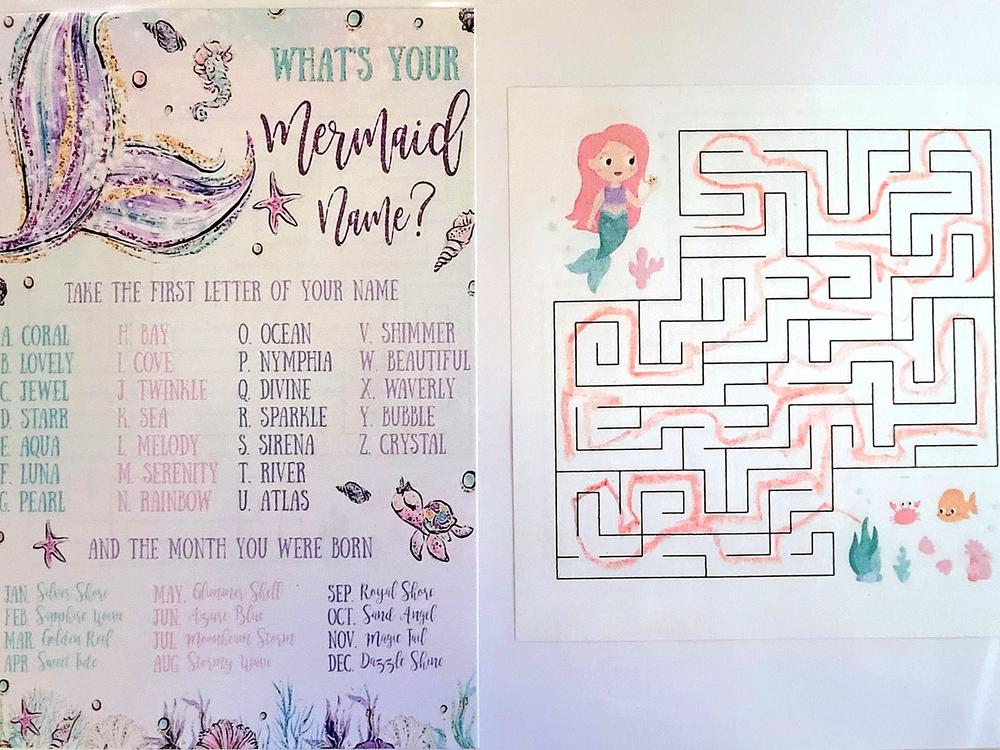 WHAT'S YOUR
Mermaid
Name?
TAKE THE FIRST LETTER OF YOUR NAME
A. CORAL H. BAY O. OCEAN V. SHIMMER
B. LOVELY I. COVE P. NYMPHIA W. BEAUTIFUL
C. JEWEL J. TWINKLE Q. DIVINE X. WAVERLY
D. STARR K. SEA R. SPARKLE Y. BUBBLE
E. AQUA L. MELODY S. SIRENA Z. CRYSTAL
F. LUNA M. SERENITY T. RIVER
G. PEARL N. RAINBOW U. ATLAS
AND THE MONTH YOU WERE BORN
JAN. Silver Shore MAY. Glimmer Shell SEP. Royal Shore
FEB. Sapphire Wave JUN. Azure Blue OCT. Sand Angel
MAR. Golden Reef JUL. Moonbeam Storm NOV. Magic Tail
APR. Sweet Tide AUG. Stormy Wave DEC. Dazzle Shine